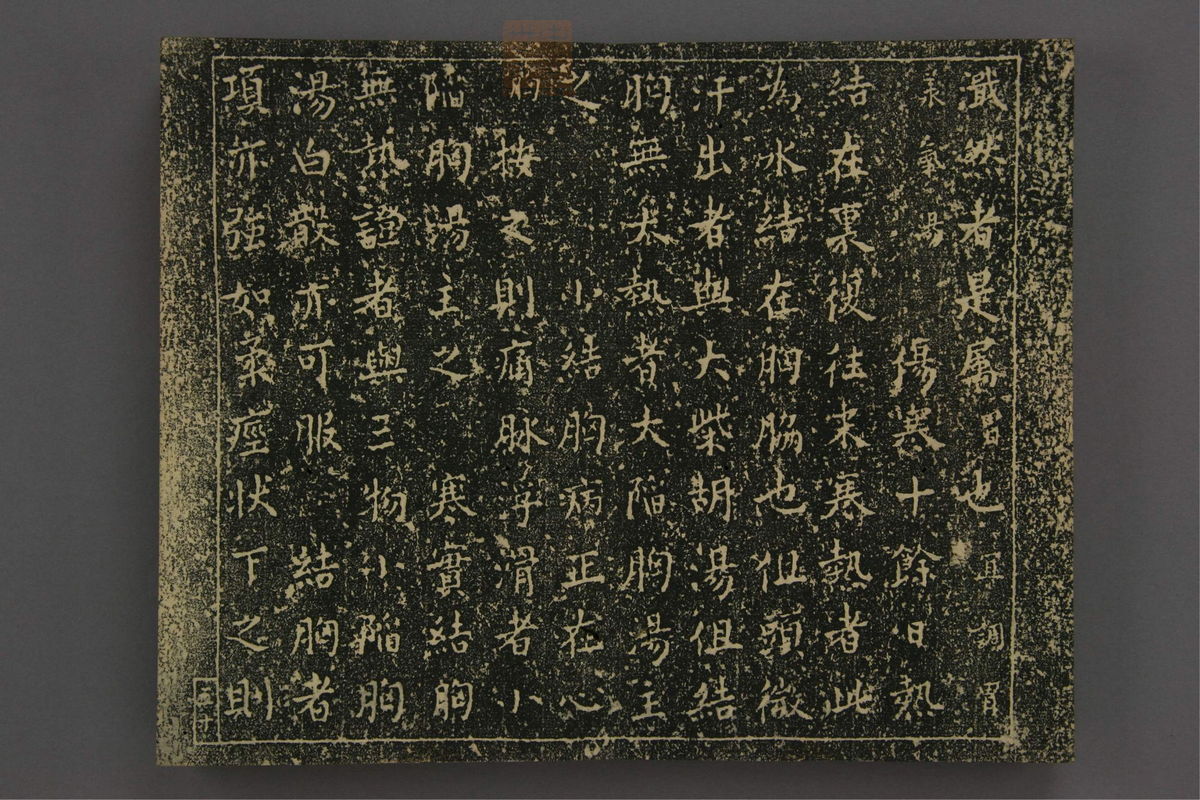 濈然者是属胃也宜調胃
承氣湯 傷寒十餘日熱
結在裏復往来寒熱者此
為水結在胸脇也但頭微
汗出者與大柴胡湯但結
胸無大熱者大陷胸湯主
之 小結胸病正在心
按之則痛脉浮滑者小
陷胸湯主之 寒實結胸
無熱證者與三物小陷胸
湯白散亦可服 結胸者
項亦強如柔痙状下之則